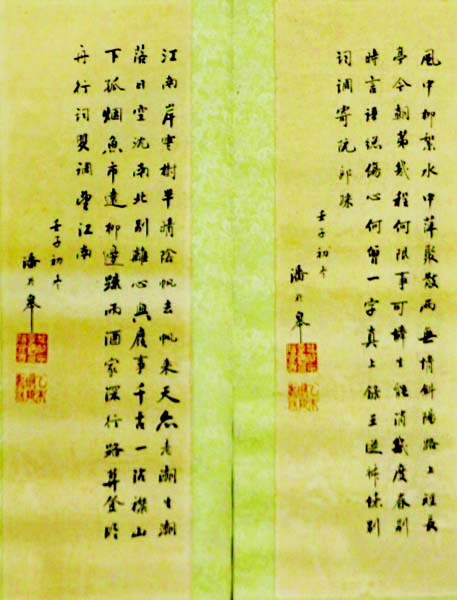 風中柳絮水中萍聚散兩無情斜陽路上短長
亭今朝第幾程何限事可憐生能消幾度春別
時言語總傷心何曾一字真上錄王別
詞調寄阮郎歸
壬子初冬
潘於皋
江南岸雲樹半晴陰帆去帆來天亦老潮生潮
落日空沈南北別離心興廢事千古一沾襟山
下孤烟魚市遠柳邊疏雨酒家深行路莫登臨
舟行詞調望江南
壬子初冬
潘於皋